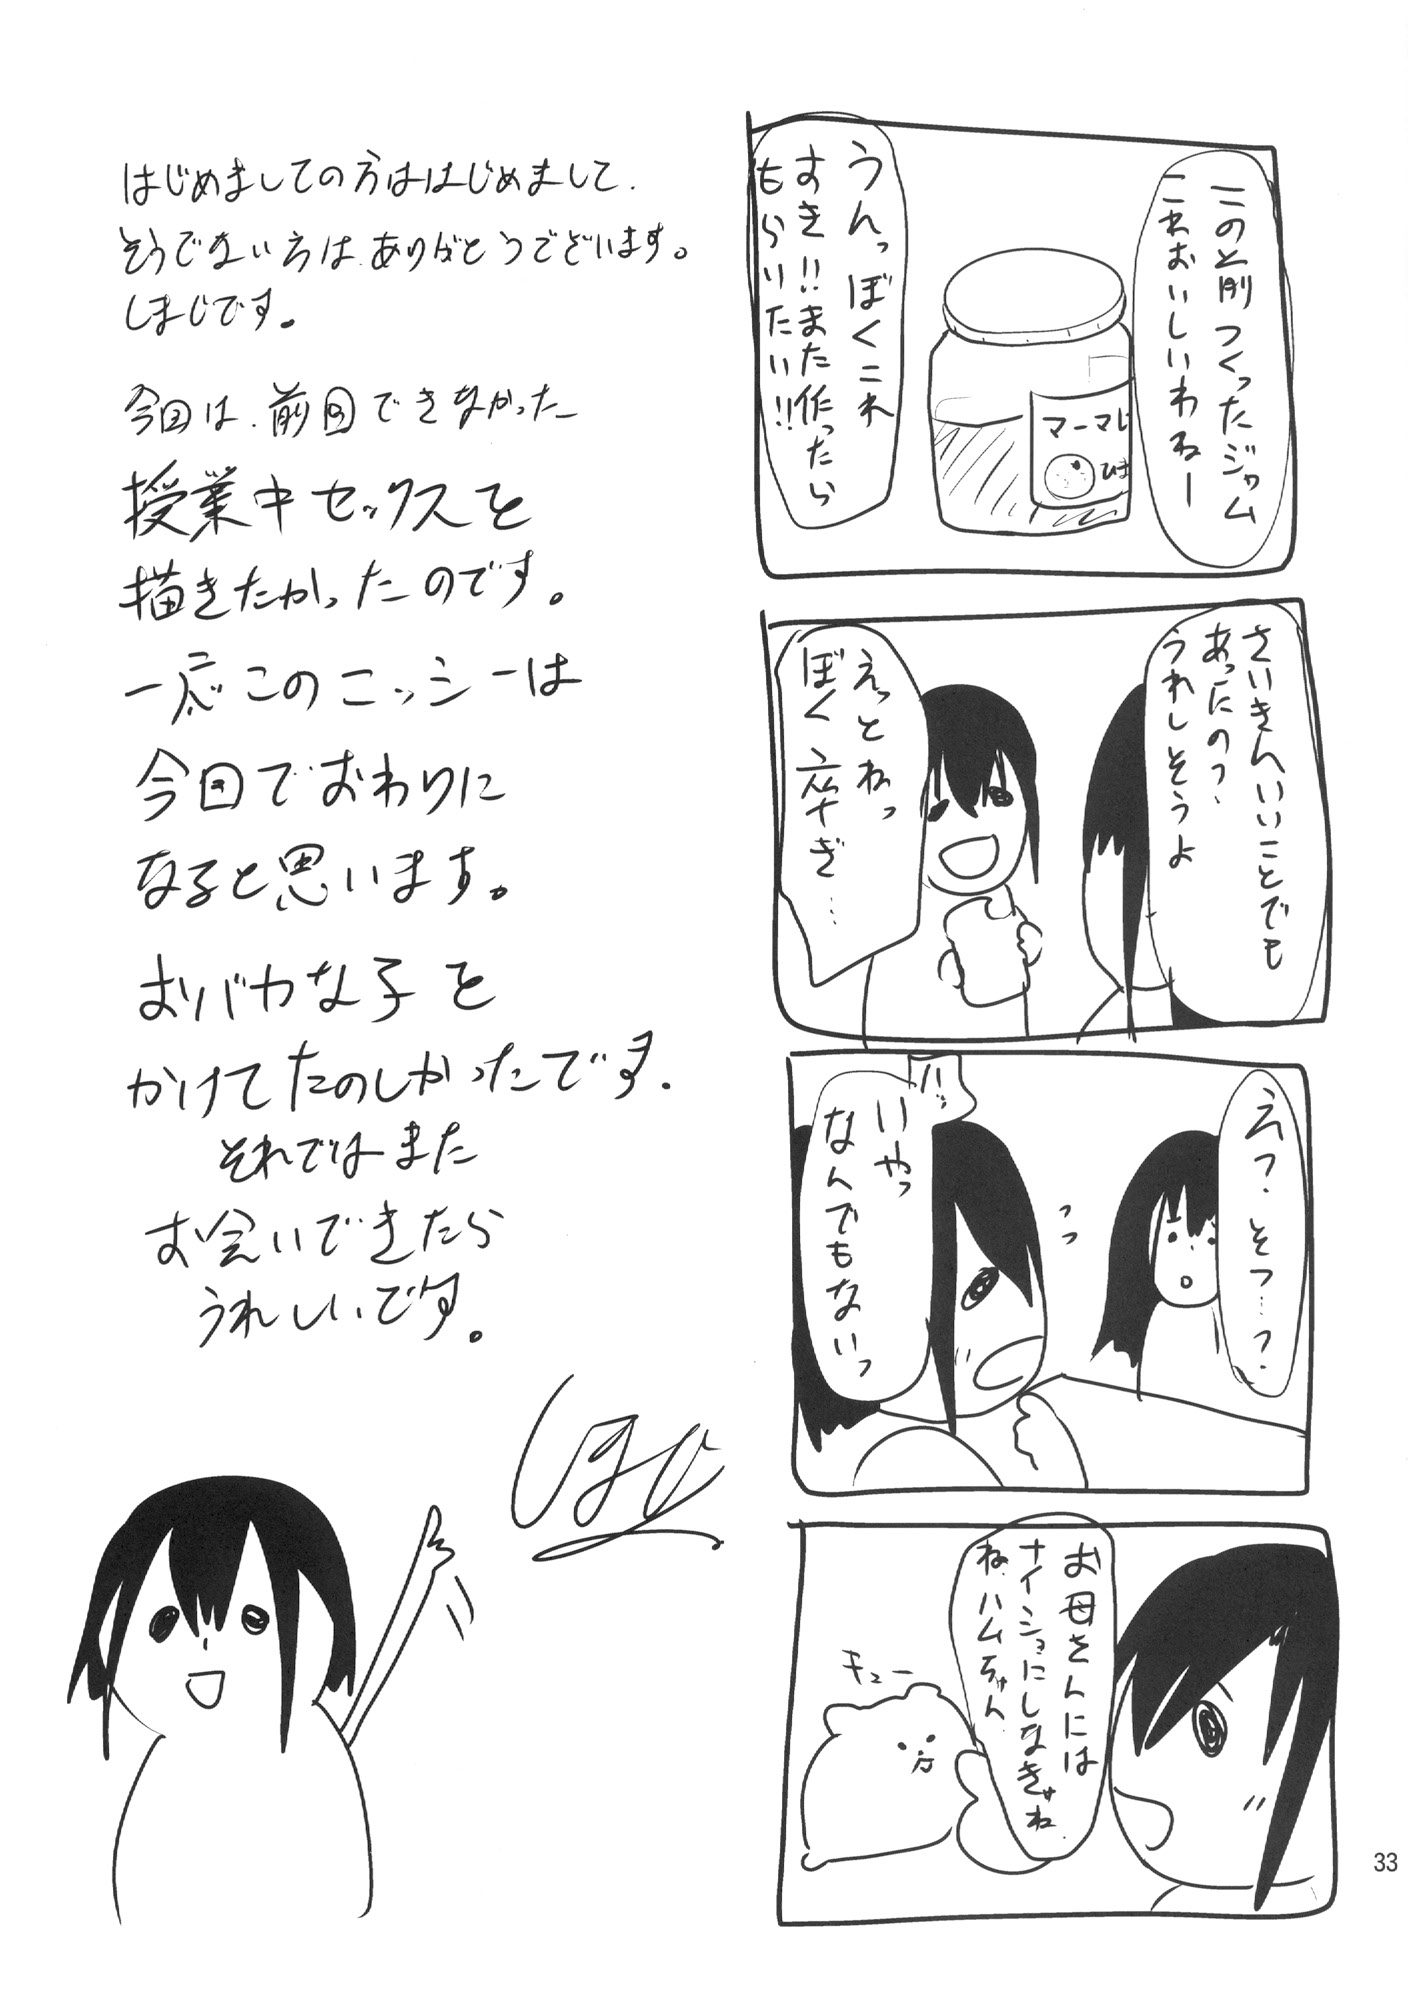 この前つくったジャム
これおいしいわねー
うんっぼくこれ
すき!!また作ったら
もらいたい!!
マーマレ
さいきんいいことでも
あったの?
うれしそうよ
えっとねっ
ぼく卒ぎ…
えっ?そつ…?
ハッ
いやっ
なんでもないっ
お母さんには
ナイショにしなきゃね
ね、ハムちゃん
キュー
はじめましての方ははじめまして、
そうでない方は、ありがとうございます。
しまじです。
今回は、前回できなかった
授業中セックスを
描きたかったのです。
一応このニッシーは
今回でおわりに
なると思います。
おバカな子を
かけてたのしかったです。
それではまた
お会いできたら
うれしいです。
しまじ
33